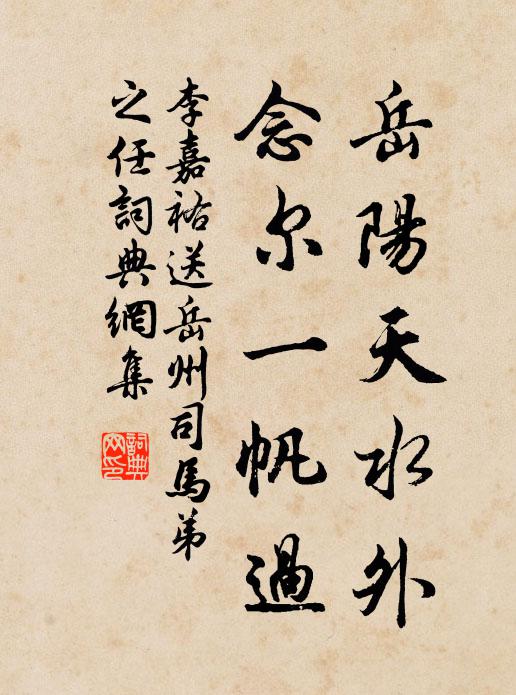 岳陽天水外
念尔一帆過
李嘉祐送岳州司馬弟
之任詞典網集
詞典
网印